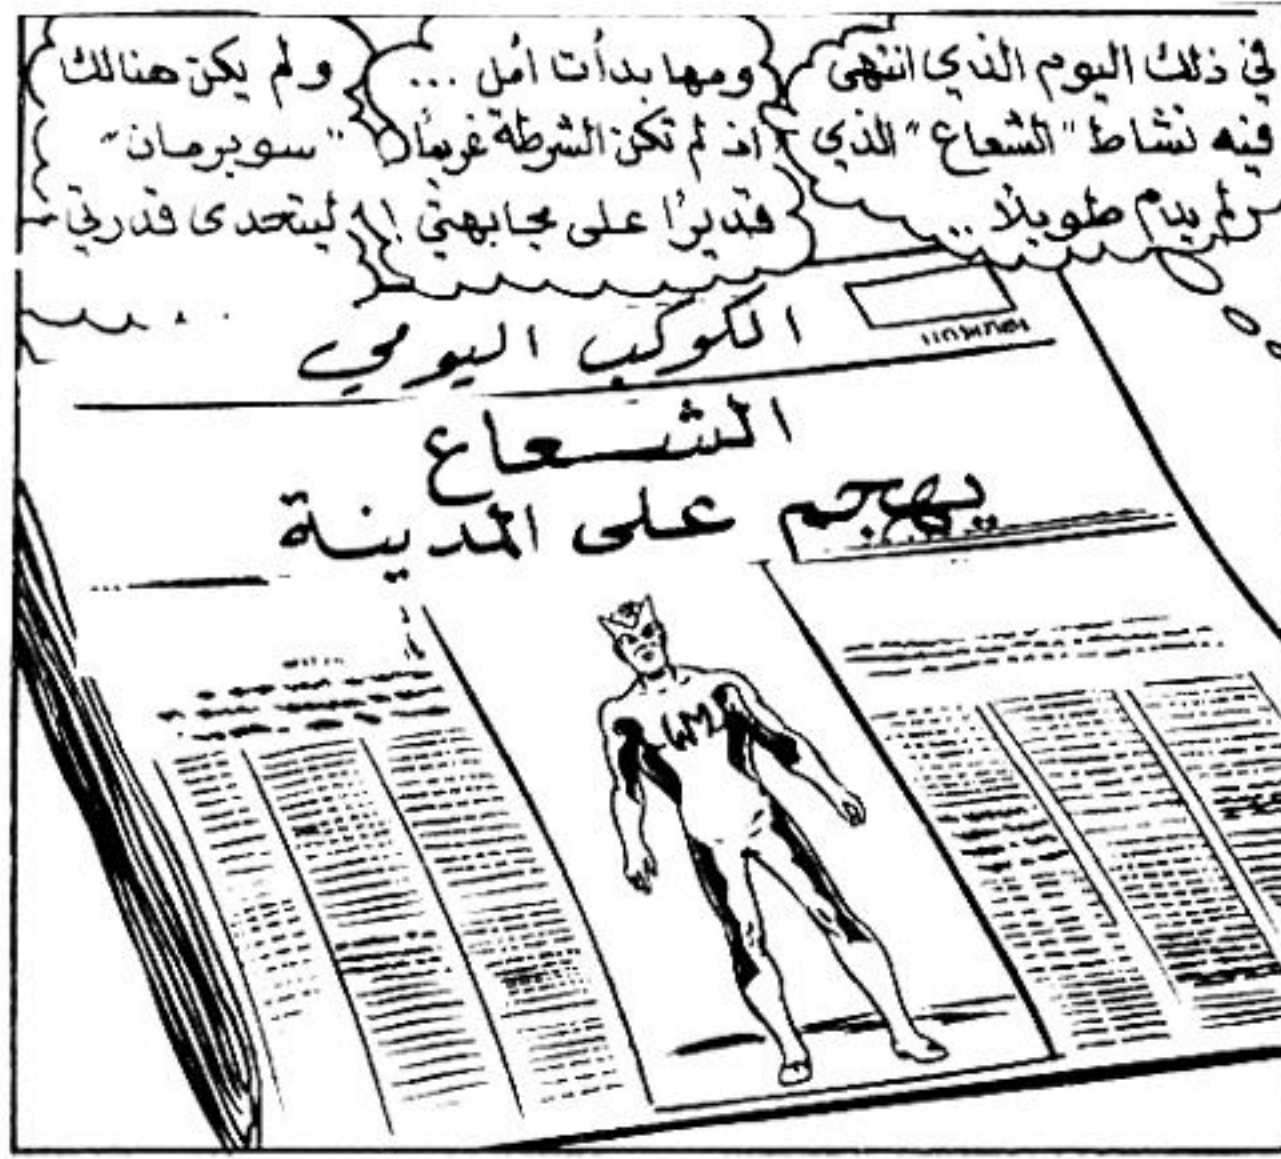 في ذلك اليوم الذي انتهى
فيه نشاط "الشعاع" الذي
لم يدم طويلاً ..
ومها بدأت أمل ...
اذ لم تكن الشرطة غريماً
قديراً على مجابهتي !!
و لم يكن هنالك
"سوبرمان"
ليتحدى قدرتي
الكوكب اليومي
الشعاع
يهجم على المدينة